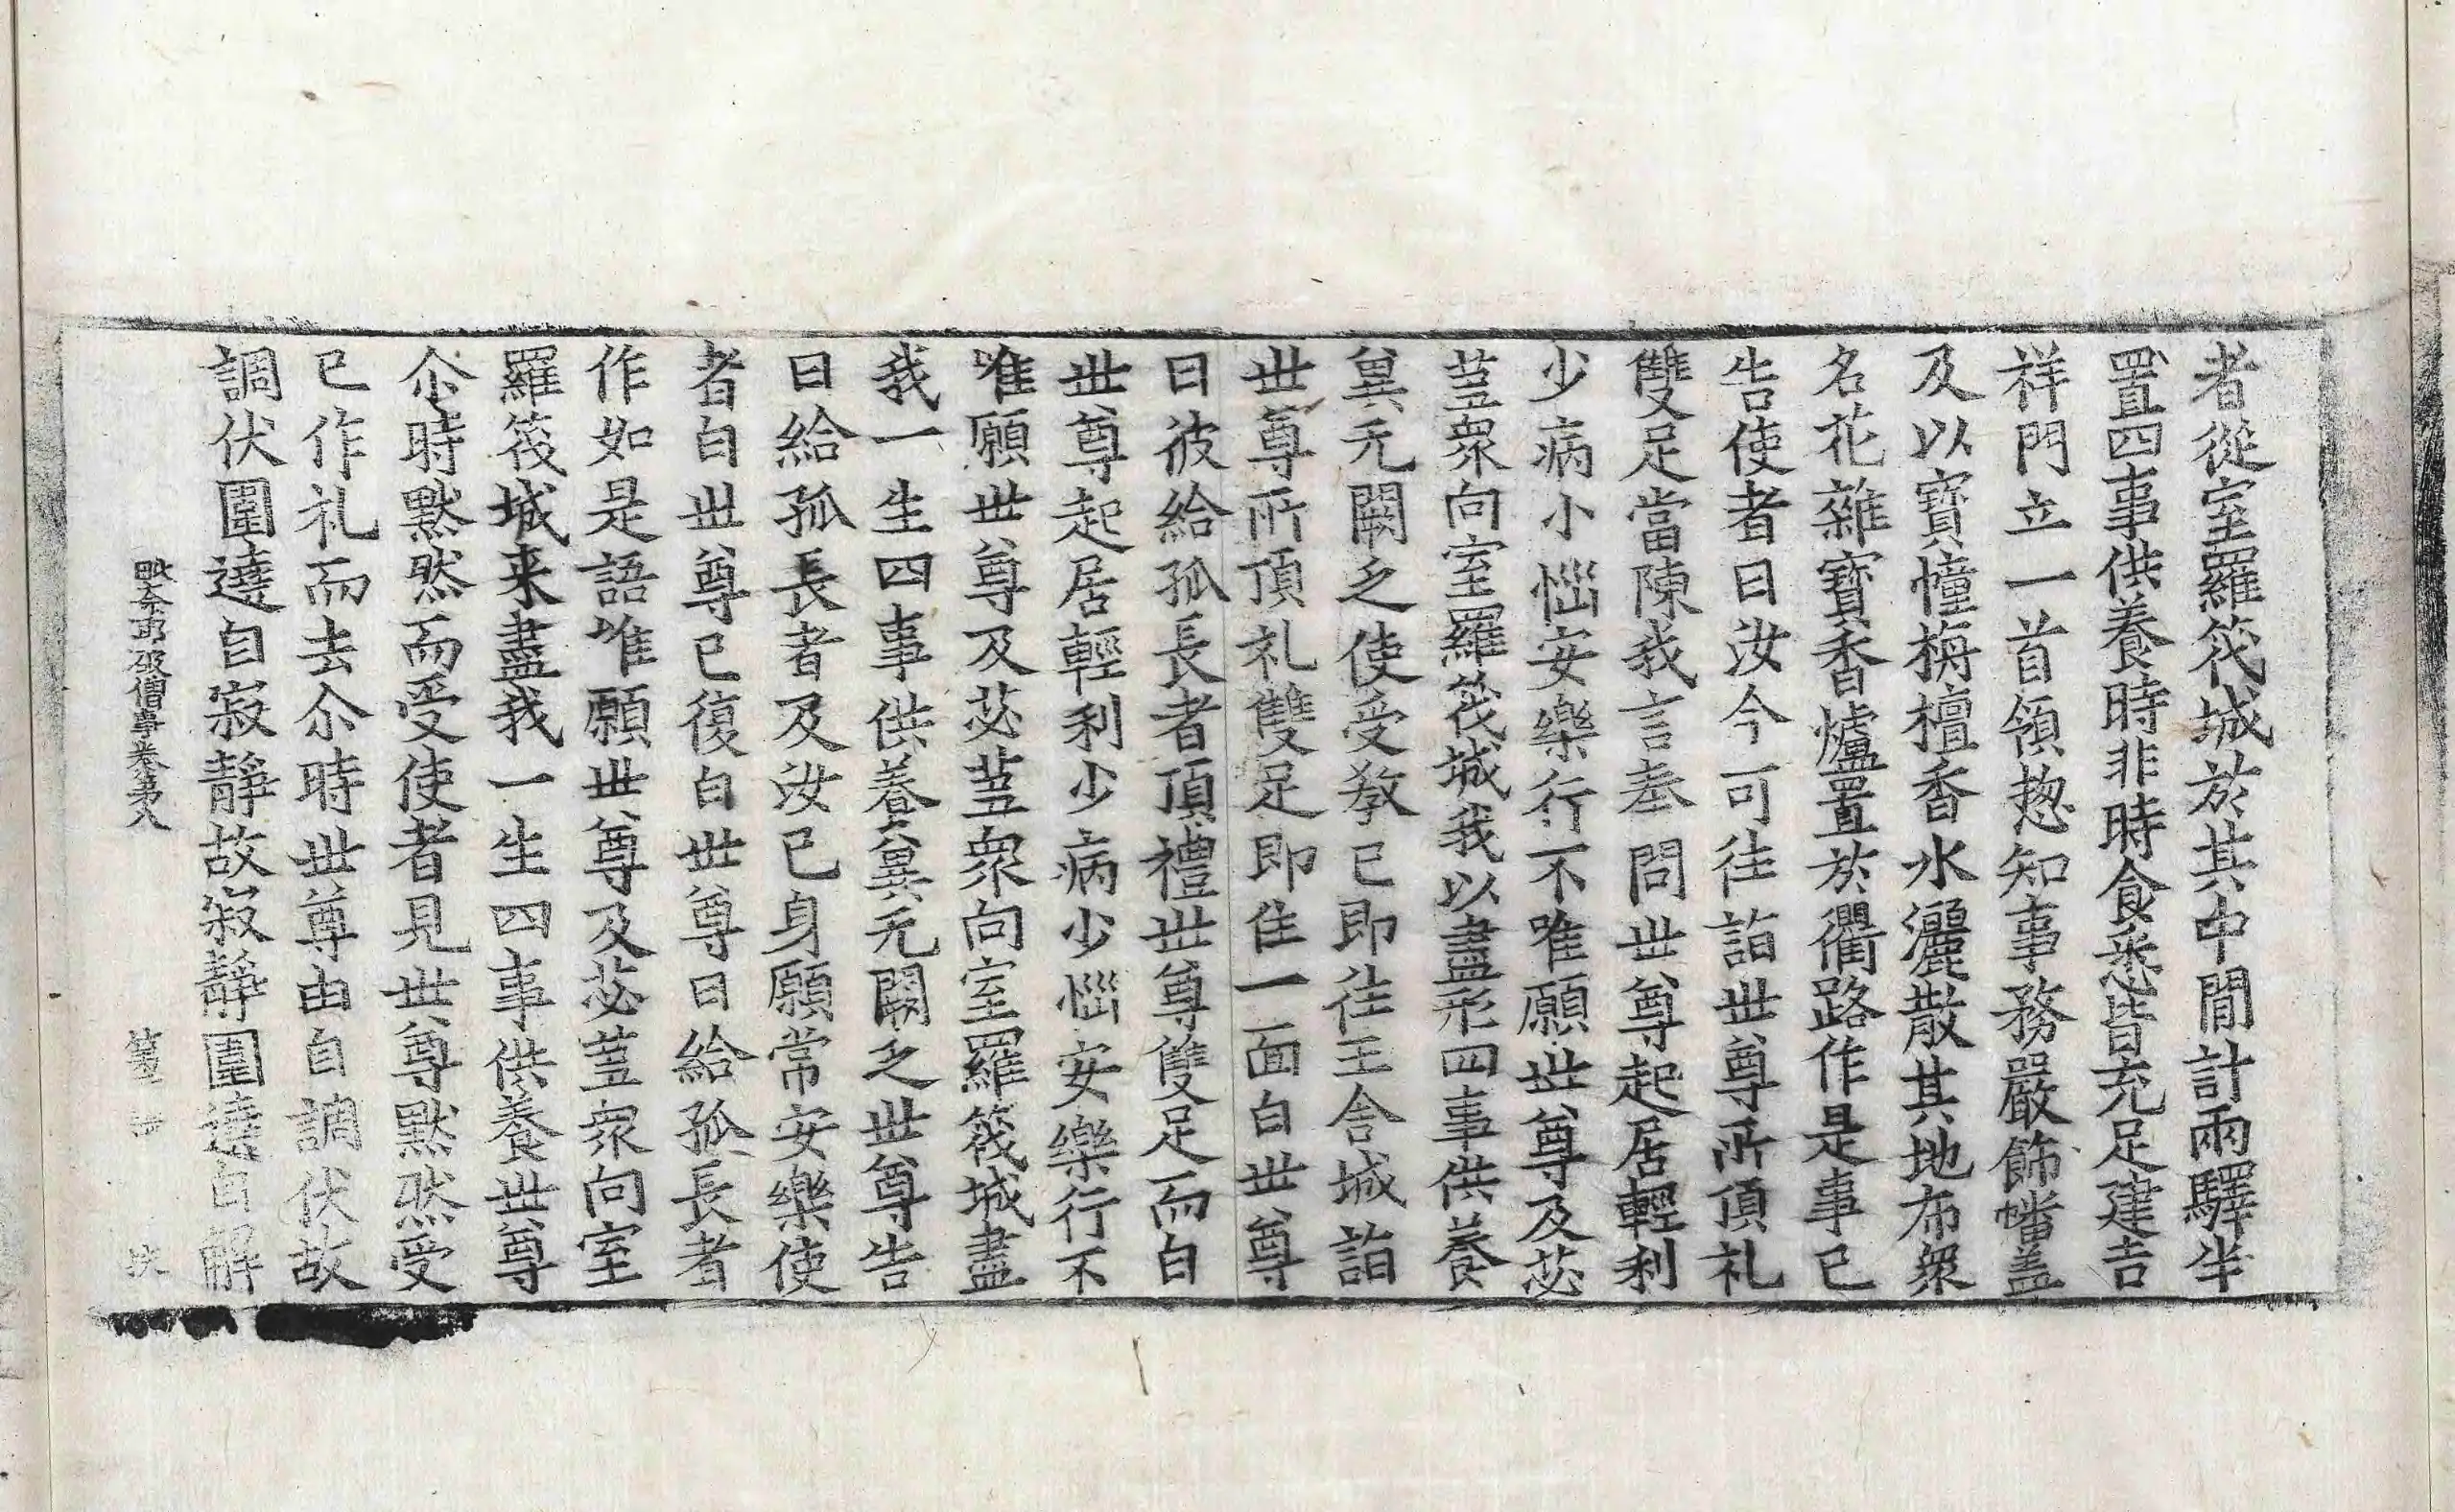 者從室羅筏城於其中間計兩驛半
置四事供養時非時食悉皆充足建吉
祥門立一首領揔知事務嚴飾幡盖
及以寶幢栴檀香水灑散其地布衆
名花雜寶香爐置於衢路作是事已
告使者曰汝今可往詣世尊所頂礼
雙足當陳我言奉問世尊起居輕利
少病小惱安樂行不唯願世尊及苾
蒭衆向室羅筏城我以盡形四事供養
兾无闕乏使受教已即往王舍城詣
世尊所頂礼雙足即住一面白世尊
曰彼給孤長者頂禮世尊雙足而白
世尊起居輕利少病少惱安樂行不
唯願世尊及苾蒭衆向室羅筏城盡
我一生四事供養兾无闕乏世尊告
曰給孤長者及汝已身願常安樂使
者白世尊已復白世尊曰給孤長者
作如是語唯願世尊及苾蒭衆向室
羅筏城来盡我一生四事供養世尊
尒時默然而受使者見世尊默然受
已作礼而去尒時世尊由自調伏故
調伏圍遶自寂靜故寂靜圍遶自解
僧事卷苐八